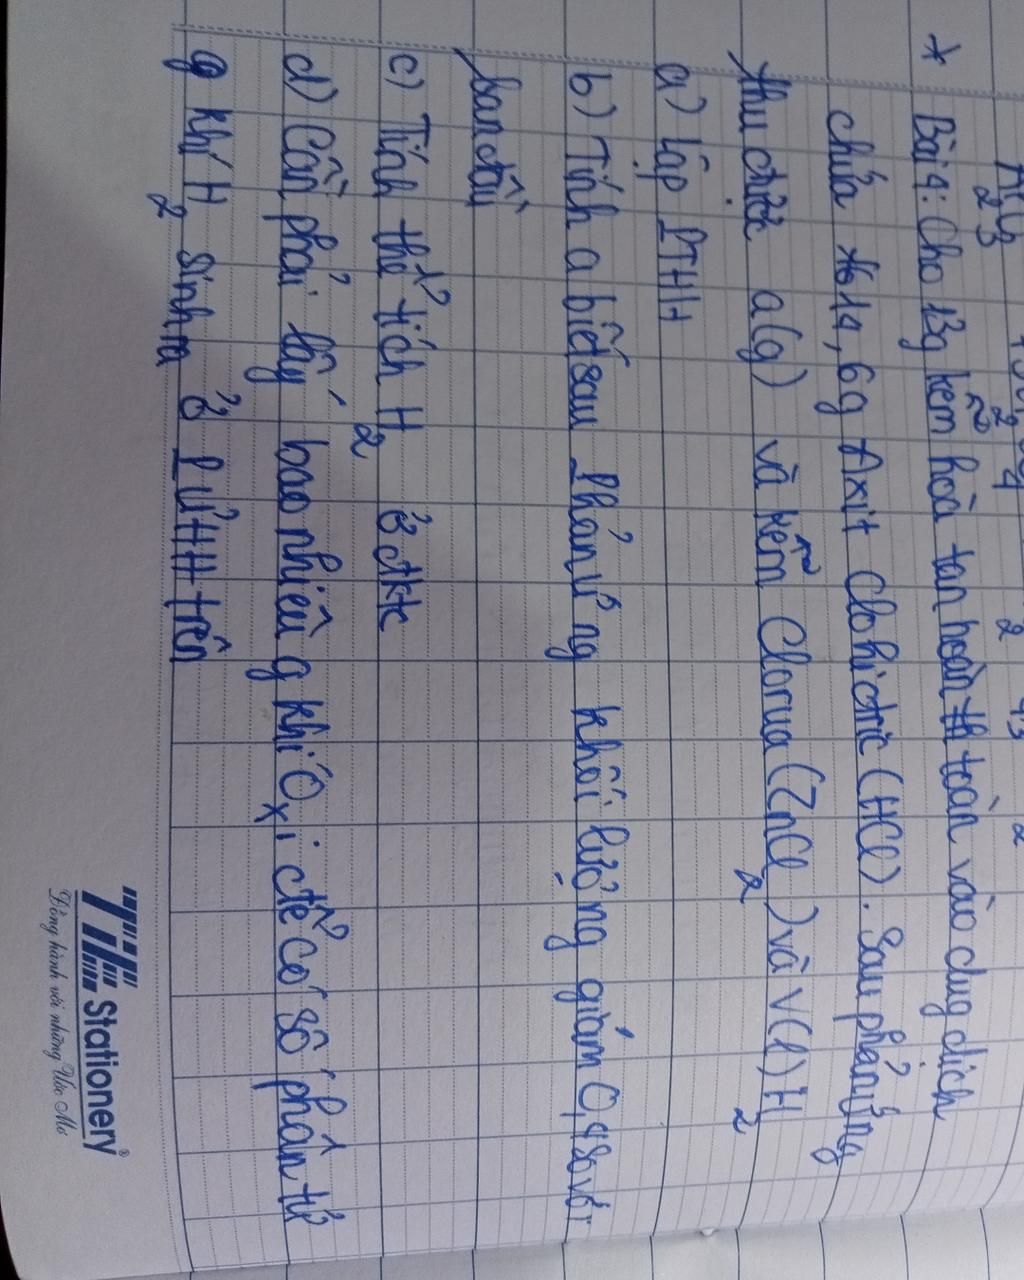 * Bài 4: Cho 13g kẽm hoà tan hoàn toàn vào dung dịch
chứa 14,6g Axit Clohiđric (HCl). Sau phản ứng
thu được a(g) và kẽm Clorua (ZnCl2) và V(l) H2
a) Lập PTHH
b) Tính a biết sau phản ứng khối lượng giảm 0,4 so với
ban đầu
c) Tính thể tích H2 ở đktc
d) Cần phải lấy bao nhiêu g khí Oxi để có số phân tử
khí H2 sinh ra ở PƯHH trên
TIE Stationery®
Đồng hành với những Ước Mơ